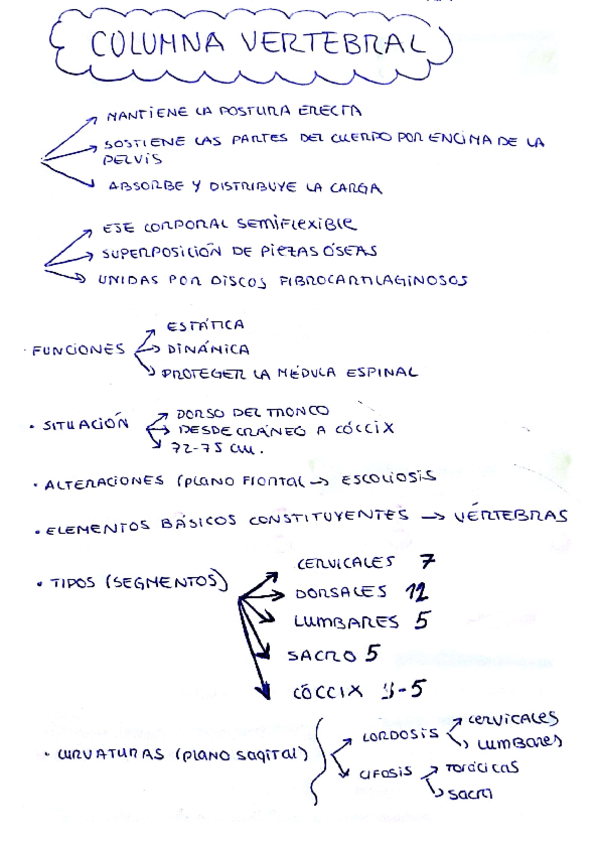 COLUMNA VERTEBRAL
MANTIENE LA POSTURA ERECTA
SOSTIENE LAS PARTES DEL CUERPO POR ENCIMA DE LA
PELVIS
ABSORBE Y DISTRIBUYE LA CARGA
EJE CORPORAL SEMIFLEXIBLE
SUPERPOSICIÓN DE PIEZAS ÓSEAS
UNIDAS POR DISCOS FIBROCARTILAGINOSOS
ESTÁTICA
· FUNCIONES → DINÁMICA
PROTEGER LA MÉDULA ESPINAL
DORSO DEL TRONCO
· SITUACIÓN → DESDE CRÁNEO A CÓCCIX
72-75 cm.
· ALTERACIONES (PLANO FRONTAL → ESCOLIOSIS
· ELEMENTOS BÁSICOS CONSTITUYENTES → VÉRTEBRAS
CERVICALES 7
· TIPOS (SEGMENTOS)
DORSALES 12
LUMBARES 5
SACRO 5
CÓCCIX 3-5
CERVICALES
LORDOSIS
LUMBARES
· CURVATURAS (PLANO SAGITAL)
CIFOSIS
TORÁCICAS
SACRA